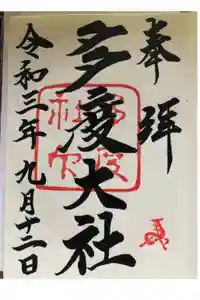 奉拝
多度大社
令和三年九月十二日